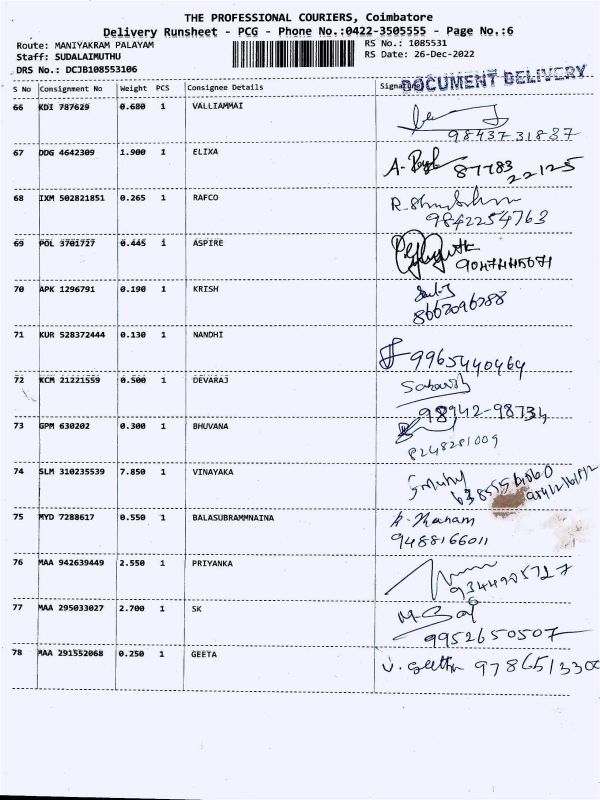 THE PROFESSIONAL COURIERS, Coimbatore
Delivery Runsheet - PCG - Phone No.:0422-3505555 - Page No.:6
Route: MANIYAKRAM PALAYAM RS No.: 1085531
Staff: SUDALAIMUTHU RS Date: 26-Dec-2022
DRS No.: DCJB108553106 DOCUMENT DELIVERY
S No Consignment No Weight PCS Consignee Details Signature
66 KDI 787629 0.680 1 VALLIAMMAI
98437 31837
67 DDG 4642309 1.900 1 ELIXA
87783
22125
68 IXM 502821851 0.265 1 RAFCO
9842254763
69 POL 3701727 0.445 1 ASPIRE
9047445071
70 APK 1296791 0.190 1 KRISH
8667096288
71 KUR 528372444 0.130 1 NANDHI
9965440464
72 KCM 21221559 0.500 1 DEVARAJ
98942-98734
73 GPM 630202 0.300 1 BHUVANA
8248281009
74 SLM 310235539 7.850 1 VINAYAKA
75 MYD 7288617 0.550 1 BALASUBRAMMNAINA
9488166011
76 MAA 942639449 2.550 1 PRIYANKA
77 MAA 295033027 2.700 1 SK
9952650507
78 MAA 291552068 0.250 1 GEETA
V. Geetha 9786513300